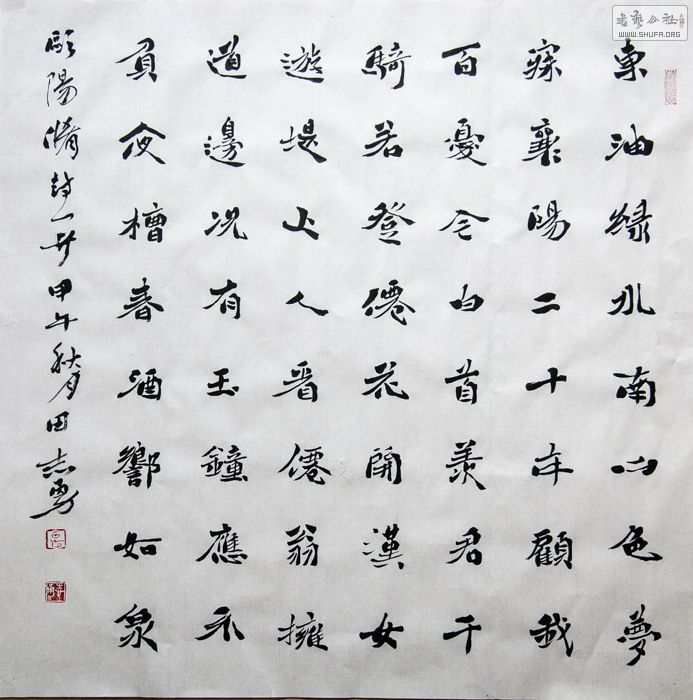 書藝公社
WWW.SHUFA.ORG
東油緑水南山色夢
寐襄陽二十年顧我
百憂今白首羨君千
騎若登僊花開漢女
遊堤上人看僊翁擁
道邊況有玉鐘應不
負夜槽春酒響如泉
歐陽脩詩一首甲午秋月田志勇